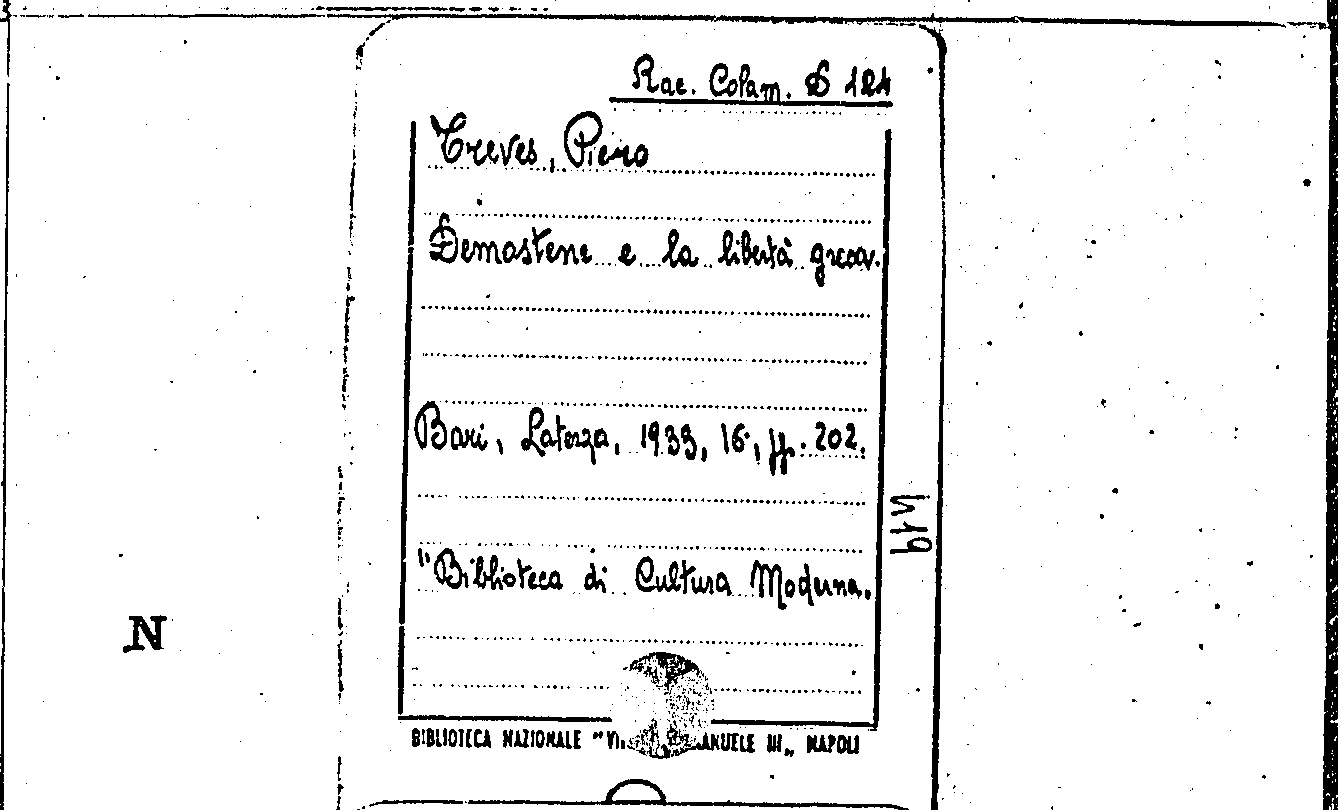 Rac. Colam. D 124
Treves, Piero
Demostene e la libertà greca.
Bari, Laterza, 1933, 16°, pp. 202.
"Biblioteca di Cultura Moderna.
N
BIBLIOTECA NAZIONALE III„ NAPOLI